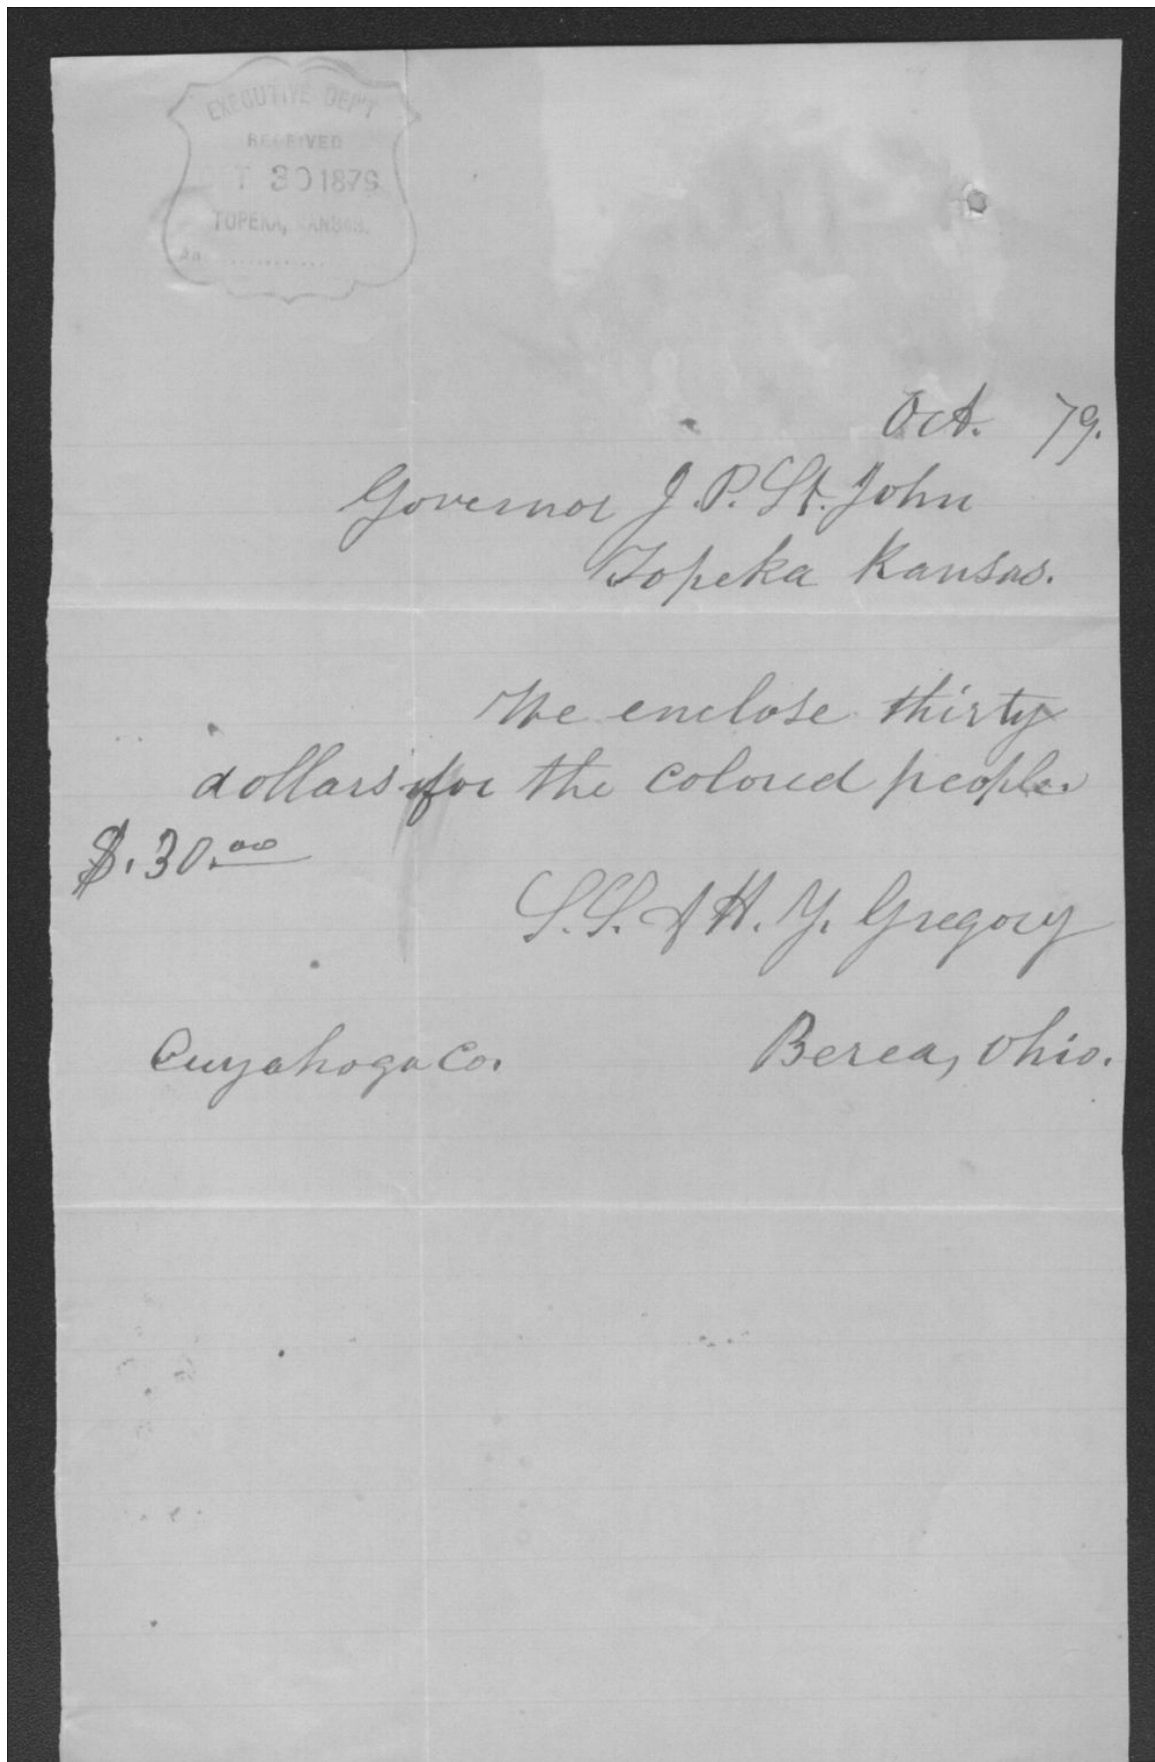 EXECUTIVE DEP'T
RECEIVED
OCT 30 1879
TOPEKA, KANSAS.
Oct. 79.
Governor J. P. St. John
Topeka Kansas.
We enclose thirty
dollars for the colored people.
$.30.00
S. S. & H. Y. Gregory
Cuyahoga Co. Berea, Ohio.